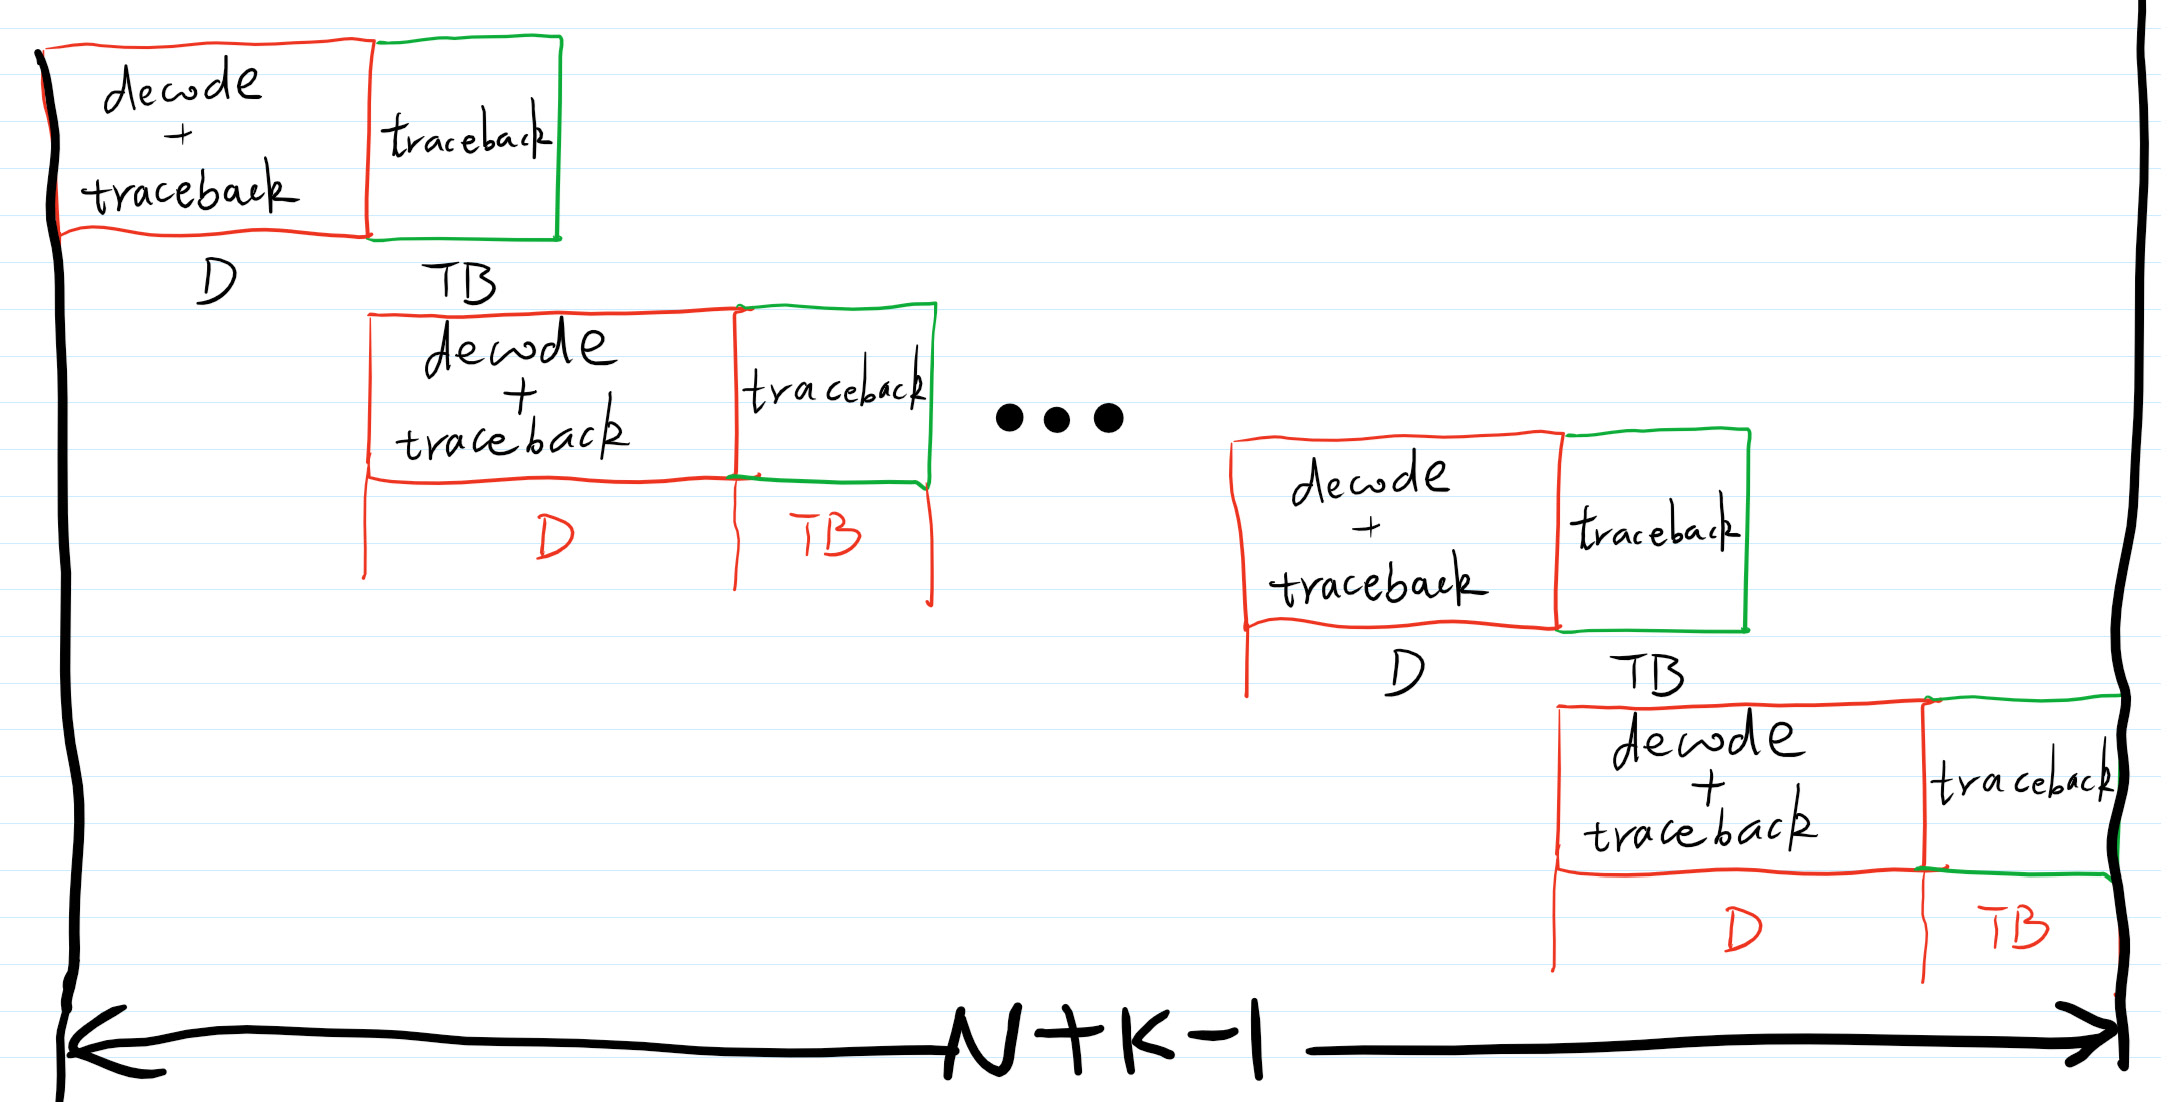 decode
+
traceback
traceback
D
TB
decode
+
traceback
traceback
D
TB
decode
+
traceback
traceback
D
TB
decode
+
traceback
traceback
D
TB
N+K-1